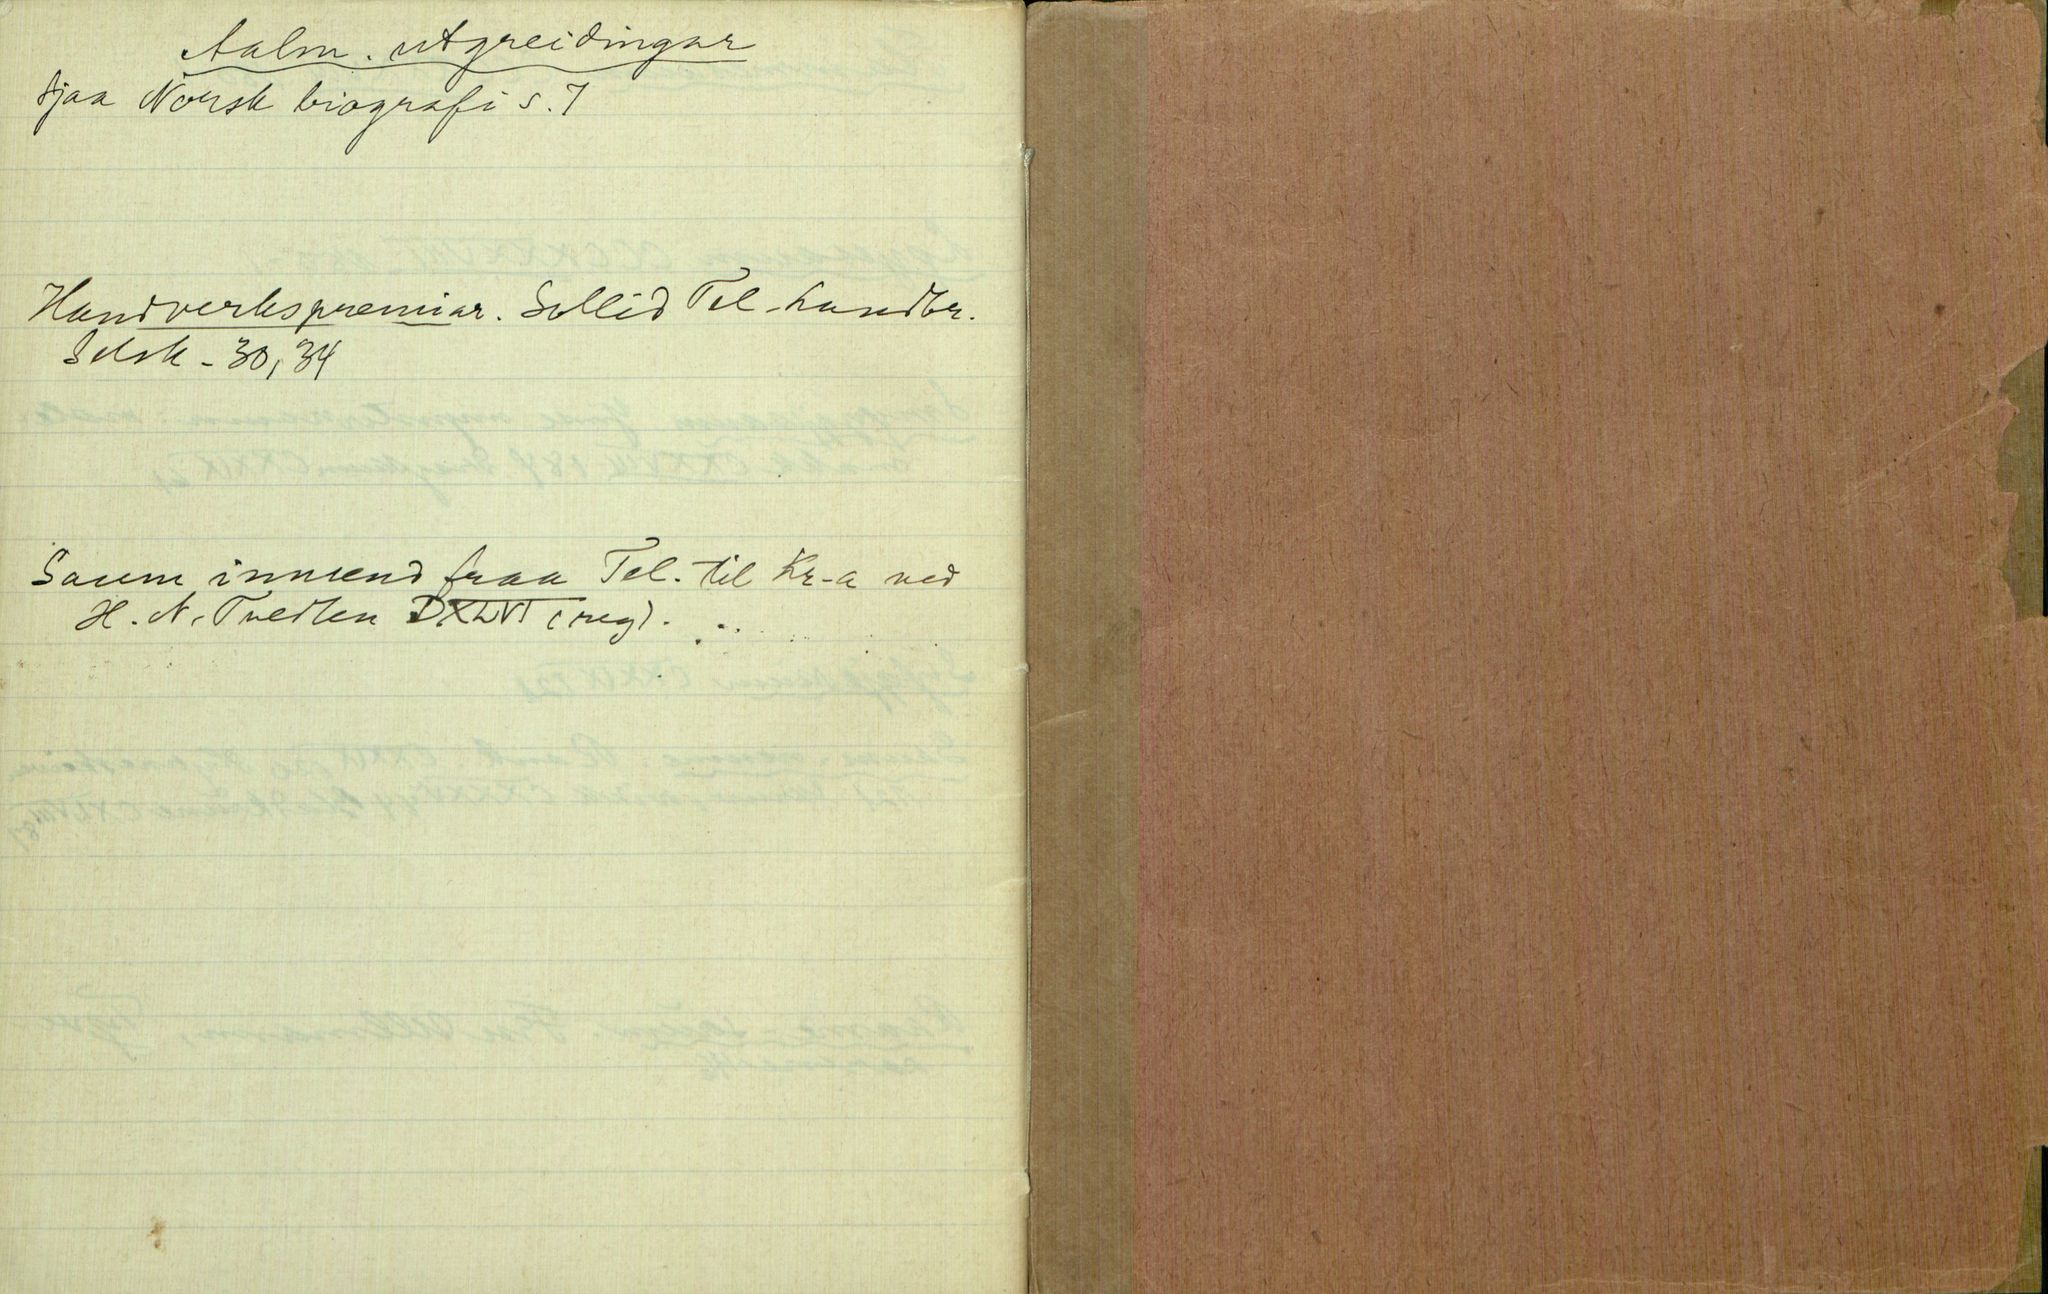 Aalm. utgreidingar
Sjaa Norsk biografi s. 7
Handverkspremiar. Sollid Tel-landbr.
Selsk - 30, 34
Saum innsend fraa Tel. til Kr-a ved
H. N. Tvedten DXLVI (reg).